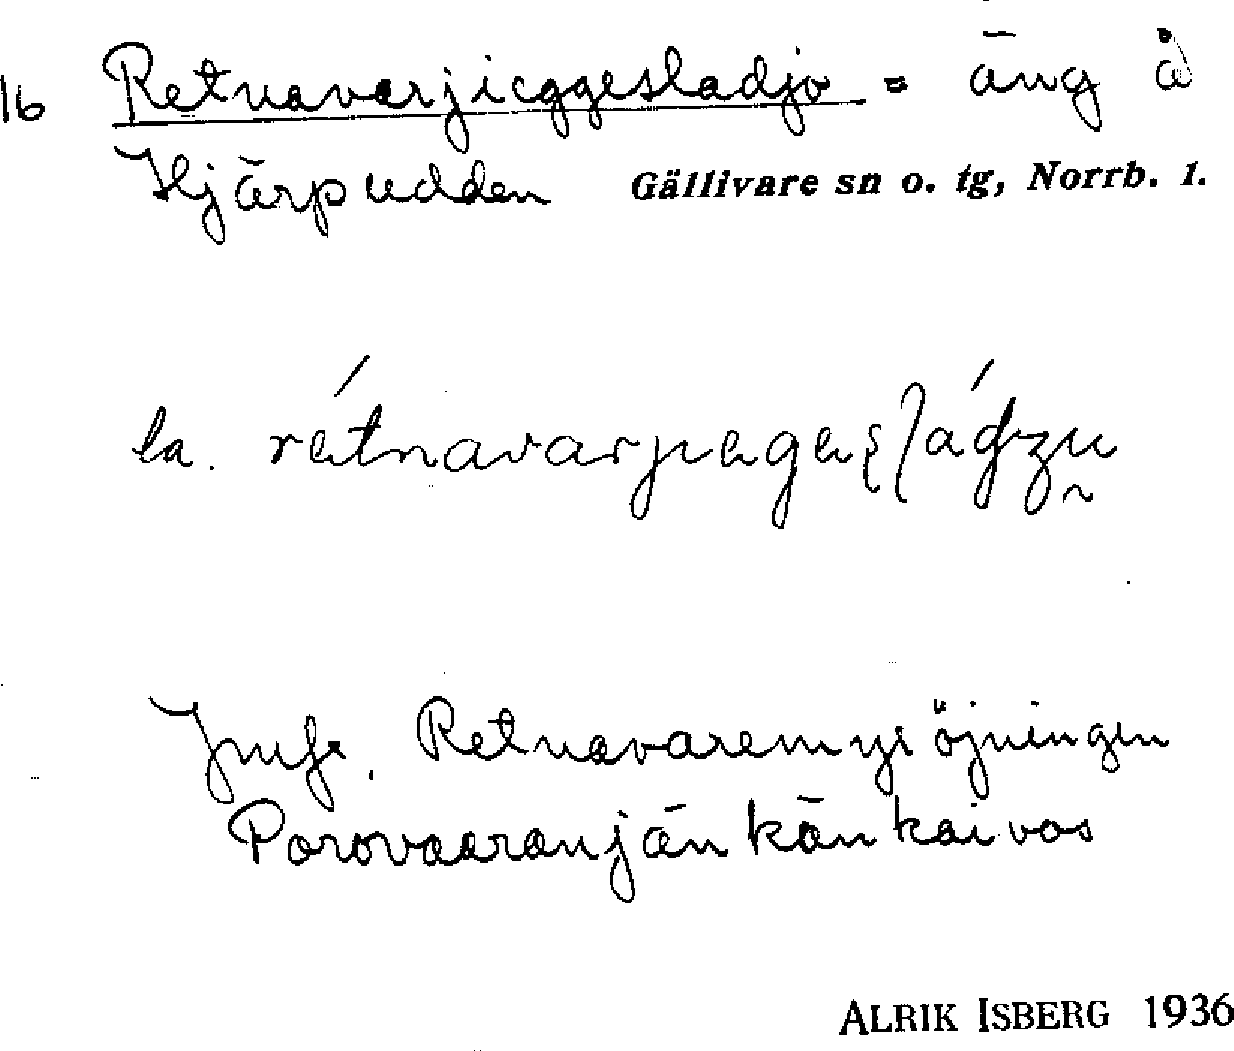 16 Retnavarjieggesladjo = äng å
Hjärpudden Gällivare sn o. tg, Norrb. l.
la.
Jmfr. Retnavaremyröjningen
Porovaaranjänkänkaivos
ALRIK ISBERG 1936